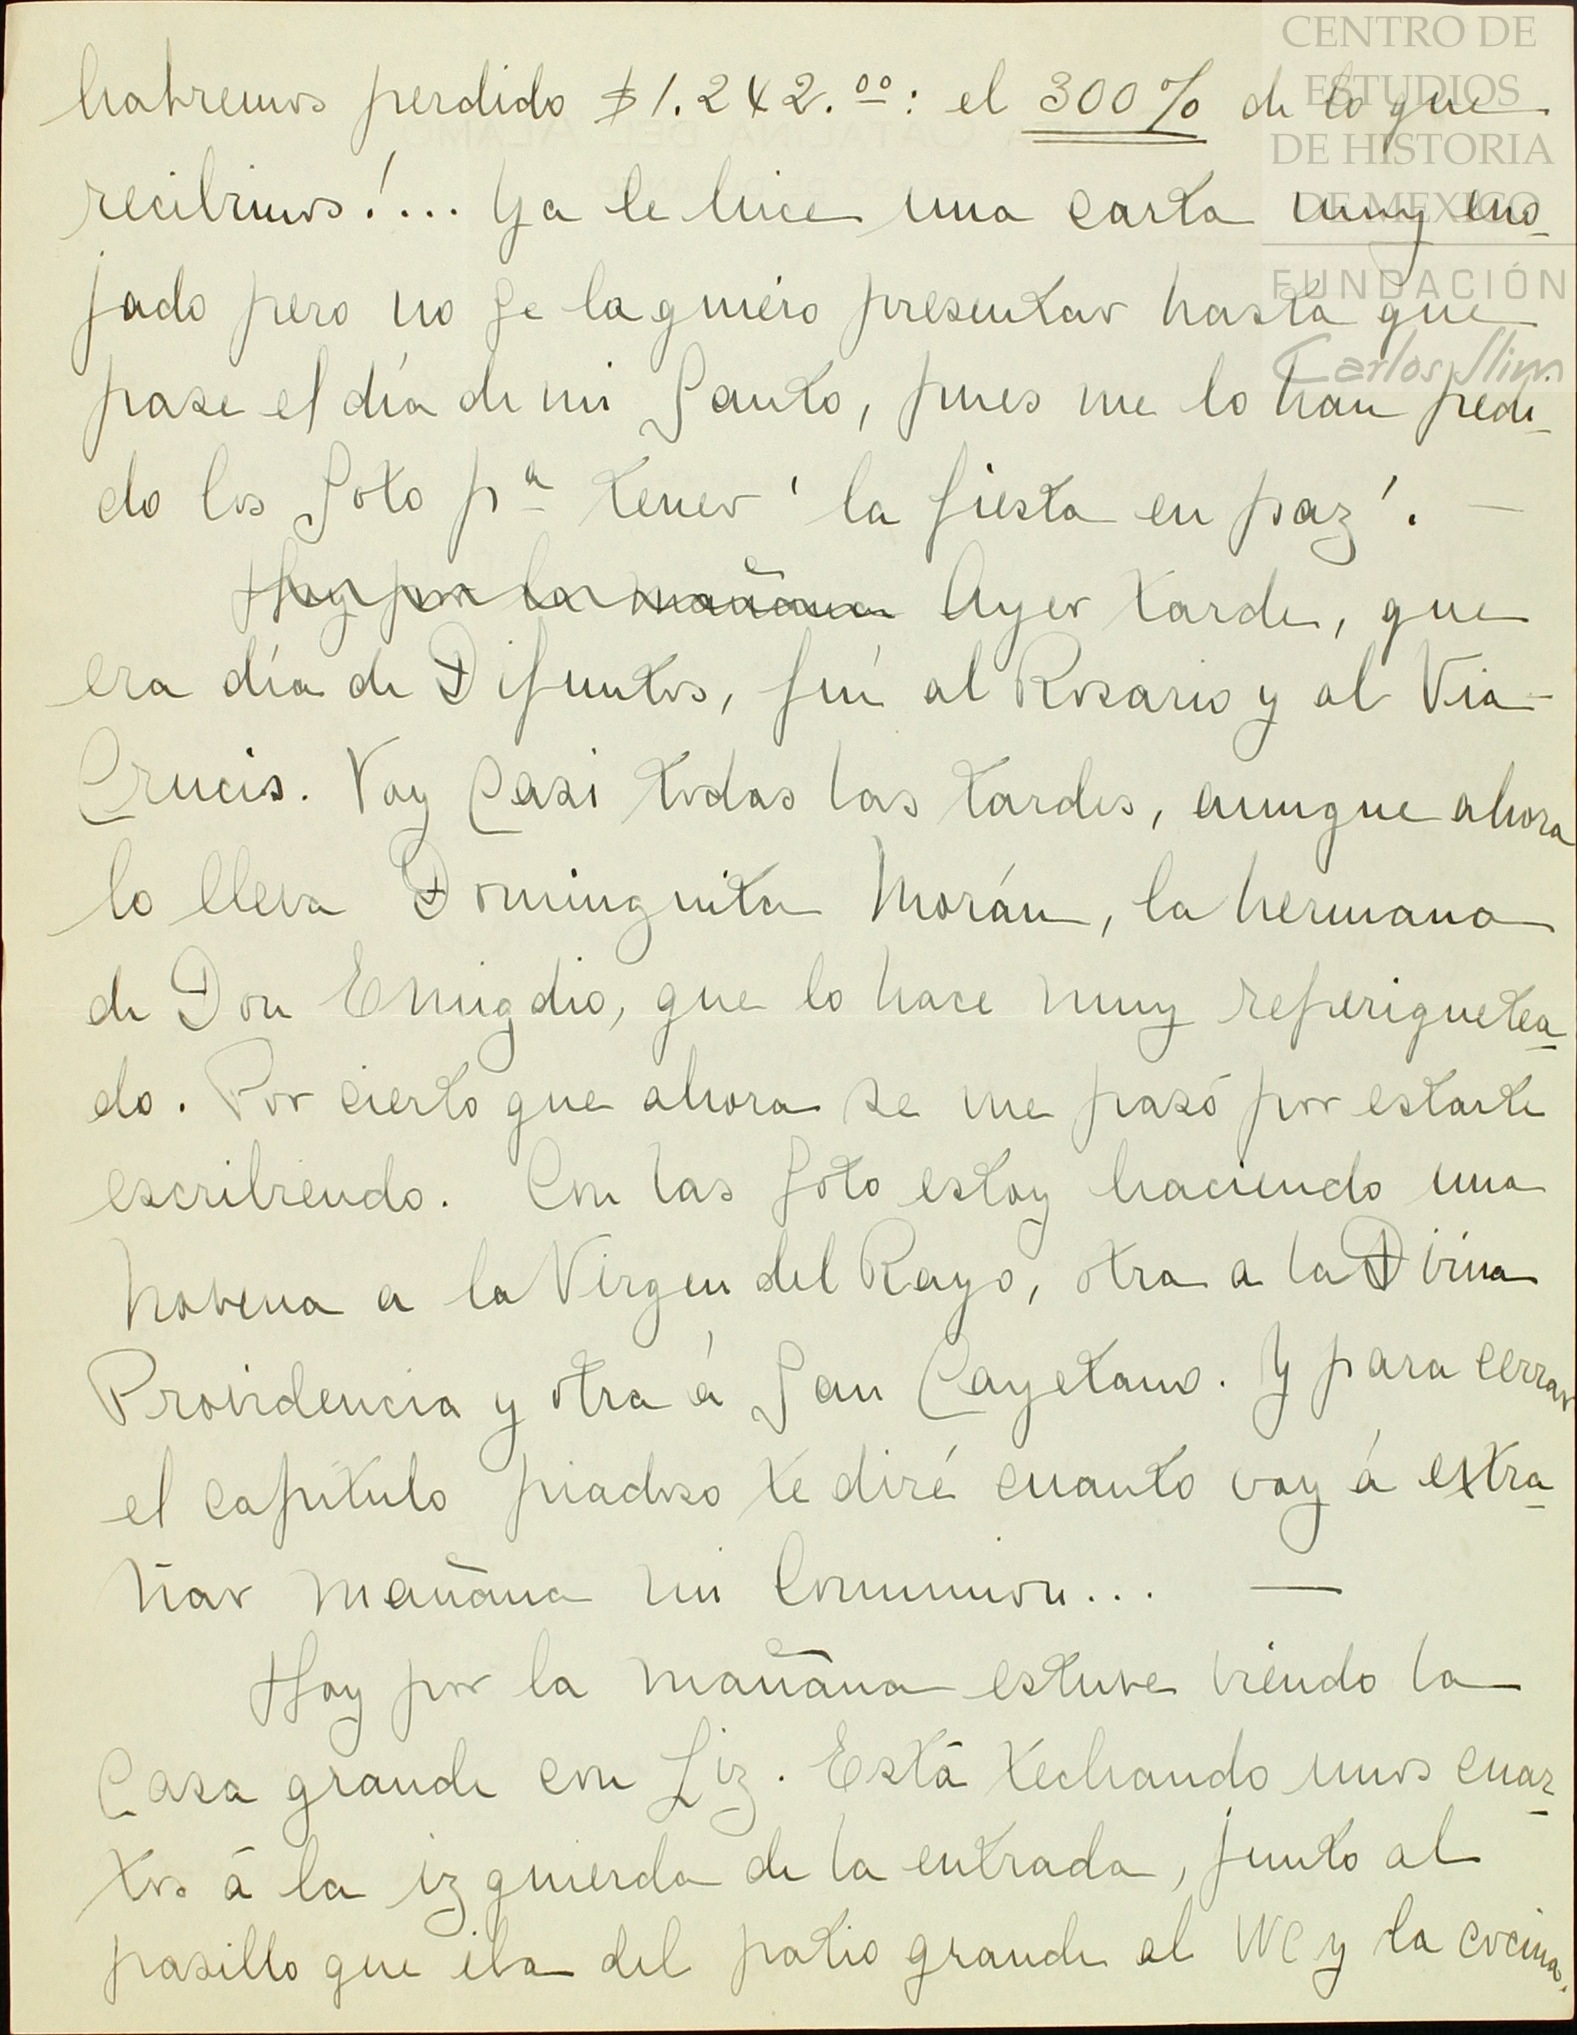 CENTRO DE
ESTUDIOS
DE HISTORIA
DE MEXICO
FUNDACIÓN
Carlos Slim
habremos perdido $1.242.00: el 300% de lo que
recibimos!... Ya le hice una carta muy eno-
jado pero no se la quiero presentar hasta que
pase el día de mi Santo, pues me lo han pedi-
do los Soto pa tener 'la fiesta en paz'. —
Hoy por la mañana Ayer tarde, que
era día de Difuntos, fuí al Rosario y al Via-
Crucis. Voy casi todas las tardes, aunque ahora
lo lleva Dominguita Morán, la hermana
de Don Emigdio, que lo hace muy reperiquetea-
do. Por cierto que ahora se me pasó por estarte
escribiendo. Con las Soto estoy haciendo una
novena a la Virgen del Rayo, otra a la Divina
Providencia y otra á San Cayetano. Y para cerrar
el capítulo piadoso te diré cuanto voy á extra-
ñar mañana mi Comunion... —
Hoy por la mañana estuve viendo la
Casa grande con Liz. Está techando unos cuar-
tos á la izquierda de la entrada, junto al
pasillo que iba del patio grande al WC y la cocina.